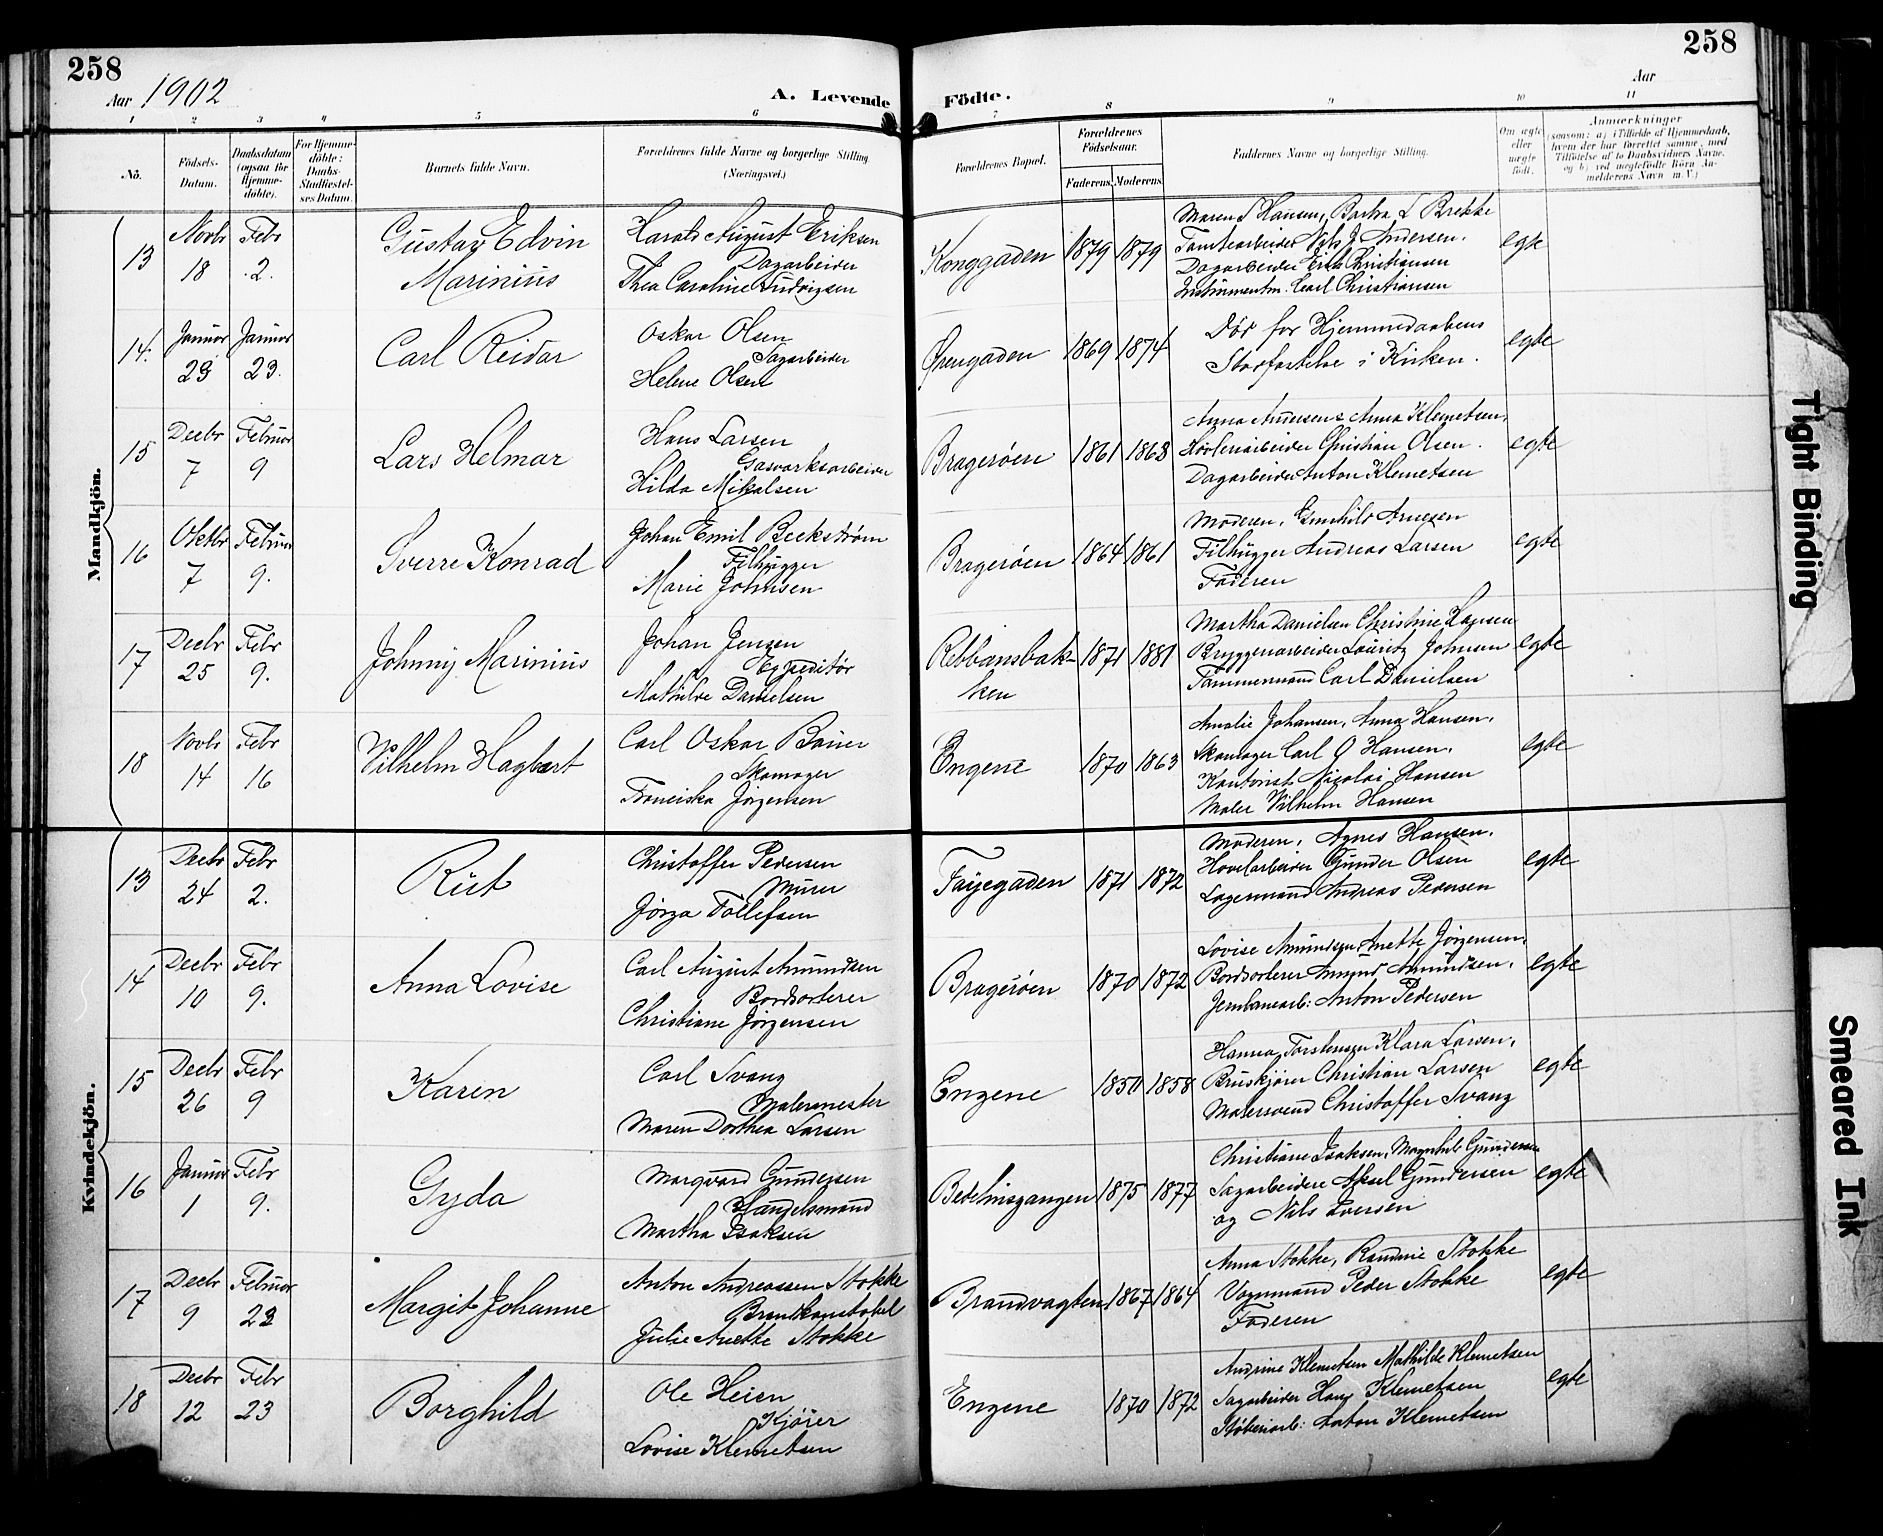 258
258
Aar 1902
Aar
A. Levende Födte.
1 2 3 4 5 6 7 8 9 10 11
No.
Födsels-Datum.
Daabsdatum (ogsaa for Hjemme-döbte).
For Hjemme-döbte: Daabs-Stadfæstel-ses Datum.
Barnets fulde Navn.
Forældrenes fulde Navne og borgerlige Stilling (Næringsvei.)
Forældrenes Bopæl.
Forældrenes Födselsaar.
Faderens. Moderens.
Faddernes Navne og borgerlige Stilling.
Om ægte eller uægte födt.
Anmærkninger
(saasom: a) i Tilfælde af Hjemmedaab, hvem der har forrettet samme, med Tilföielse af to Daabsvidners Navne, og b) ved uegtefödte Börn Anmelderens Navn m. V.)
Mandkjön.
13
Novbr 18
Febr 2.
Gustav Edvin Marinius
Harald August Eriksen
Dagarbeider
Thea Caroline Ludvigsen
Konggaden
1879 1879
Maren S Hansen, Barbra L Brekke
Tomtearbeider Nils J. Andersen.
Dagarbeider Erik Christiansen
Instrumentm. Carl Christiansen
egte
14.
Januar 23
Januar 23.
Carl Reidar
Oskar Olsen
Sagarbeider
Helene Olsen
Ørengaden
1869 1874
Dør før Hjemmedaabens
Stadfæstelse i Kirken.
egte
15
Decbr 7
Februar 9
Lars Helmar
Hans Larsen
Gasværksarbeider
Hilda Mikalsen
Bragerøen
1861 1863
Anna Andersen & Anna Klemetsen,
Høvleriarbeider Christian Olsen.
Dagarbeider Anton Klemetsen
egte
16
Oktbr 7
Februar 9.
Sverre Konrad
Johan Emil Beckstrøm
Tilhugger
Marie Johnsen
Bragerøen
1864 1861
Moderen, Gunhild Arnesen
Tilhugger Andreas Larsen
Faderen
egte
17
Decbr 25
Febr 9.
Johnny Marinius
Johan Jensen
Expeditør
Mathilde Danielsen
Rebbansbakken
1871 1881
Martha Danielsen Christine Hansen
Bryggeriarbeider Lauritz Johnsen
Tømmermand Carl Danielsen
egte
18
Novbr 14
Febr 16
Vilhelm Hagbart
Carl Oskar Baner
Skomager
Franciska Jørgensen
Engene
1870 1863
Amalie Johansen, Anna Hansen,
Skomager Carl O Hansen.
Kontorist Nicolai Hansen
Maler Vilhelm Hansen
egte
Kvindekjön.
13
Decbr 24
Febr 2.
Rut
Christoffer Pedersen
Murer
Jørga Tollefsen
Tøyegaden
1871 1872
Moderen, Agnes Hansen.
Hovelarbeider Gunder Olsen
Lagermand Andreas Pedersen
egte
14
Decbr 10
Febr 9.
Anna Lovise
Carl August Amundsen
Bordsorterer
Christiane Jørgensen
Bragerøen
1870 1872
Lovise Amundsen, Anette Jørgensen,
Bordsorterer Amund Amundsen.
Jernbanearb: Anton Pedersen
egte
15
Decbr 26
Febr 9
Karen
Carl Svang
Malermester
Maren Dorthea Larsen
Engene
1850 1858
Hanna Torstensen Klara Larsen,
Bruskjører Christian Larsen
Malersvend Christoffer Svang
egte
16
Januar 1
Febr 9.
Gyda
Marqvard Gundersen
Handelsmand
Martha Isaksen
Bedehusgangen
1875 1877
Christiane Isaksen, Magnhild Gundersen
Sagarbeidere Aksel Gundersen
og Nils Iversen
egte
17
Decbr 9
Februar 23
Margit Johanne
Anton Andreassen Stokke
Brandkonstabel
Julie Anette Stokke
Brandvagten
1867 1864
Anna Stokke, Randine Stokke
Vognmand Peder Stokke
Faderen
egte
18
Decbr 12
Febr 23
Borghild
Ole Heien
Kjører
Lovise Klemetsen
Engene
1870 1872
Andrine Klemetsen Mathilde Klemetsen
Sagarbeider Hans Klemetsen
Støberiarb: Anton Klemetsen
egte
Tight Binding
Smeared Ink